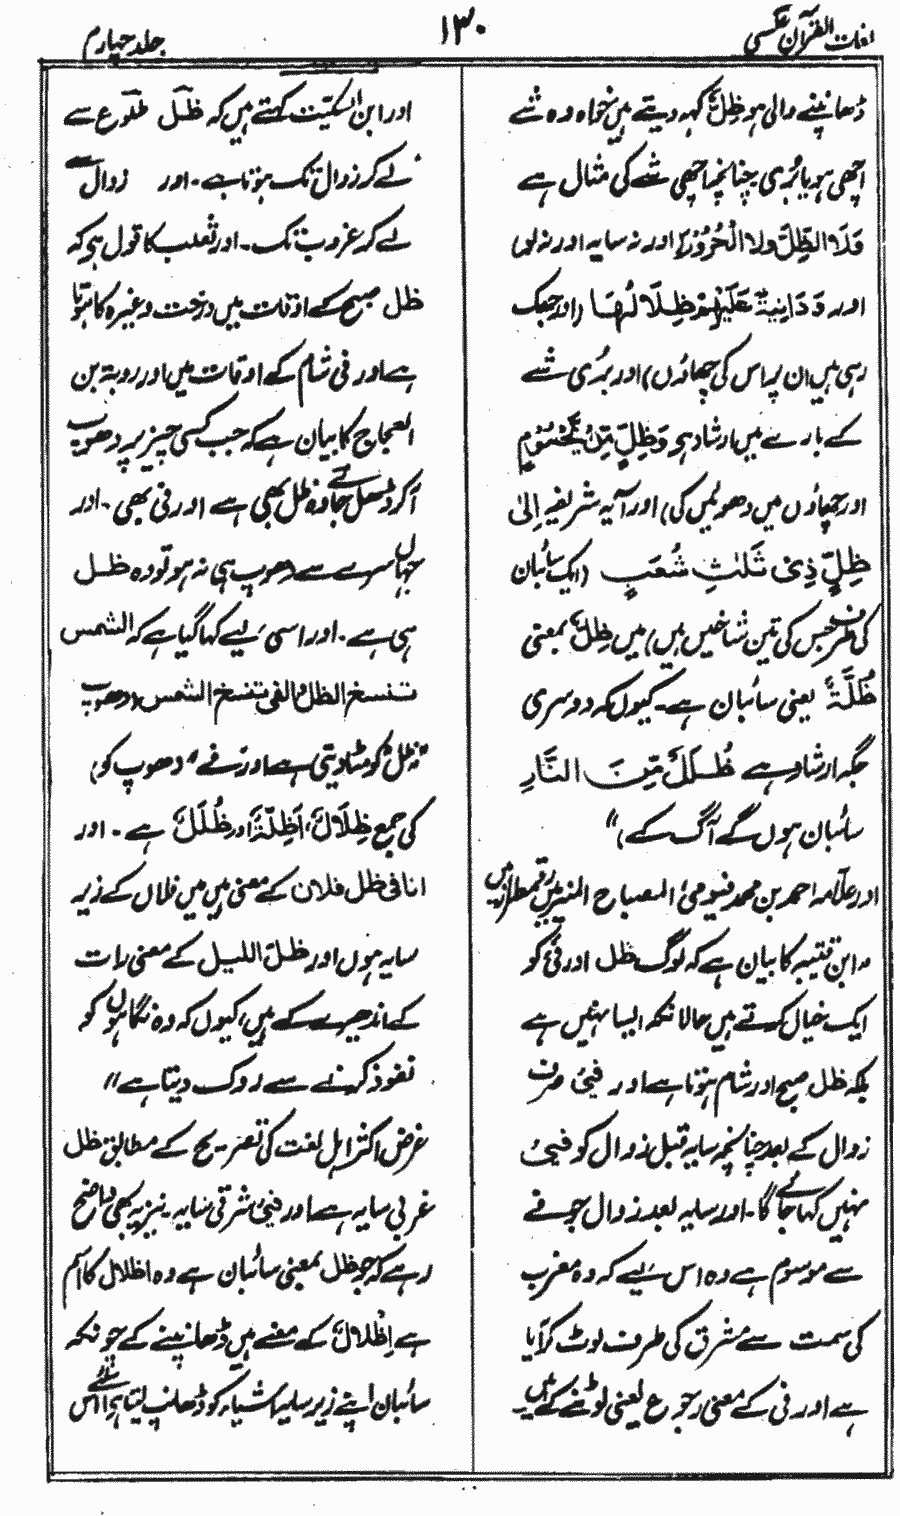 لغات القرآن عکسی
۱۳۰
جلد چہارم
ڈھانپنے والی ہو ظِلٌّ کہہ دیتے ہیں خواہ وہ شے
اچھی ہو یا بُری چنانچہ اچھی شے کی مثال ہے
وَلَا الظِّلُّ ولا الْحَرُوْرُ اور نہ سایہ اور نہ لو
اور وَدَانِيَةً عَلَيْهِمْ ظِلَالُهَا (اور جھک
رہی ہیں ان پر اس کی چھاؤں) اور بُری شے
کے بارے میں ارشاد ہے وَظِلٍّ مِّنْ يَّحْمُوْمٍ
اور چھاؤں میں دھوئیں کی) اور آیہ شریفہ اِلیٰ
ظِلٍّ ذِیْ ثَلٰثِ شُعَبٍ (ایک سائبان
کی طرف جس کی تین شاخیں ہیں) میں ظِلٌّ بمعنی
ظُلَّةٌ یعنی سائبان ہے۔ کیوں کہ دوسری
جگہ ارشاد ہے ظُلَلٌ مِّنَ النَّارِ
سائبان ہوں گے آگ کے)"
اور علامہ احمد بن محمد فیومی المصباح المنیر میں رقمطراز ہیں
"ابن قتیبہ کا بیان ہے کہ لوگ ظل اور فئ کو
ایک خیال کرتے ہیں حالانکہ ایسا نہیں ہے
بلکہ ظل صبح اور شام ہوتا ہے اور فیئ صرف
زوال کے بعد چنانچہ سایہ قبل زوال کو فیئ
نہیں کہا جائے گا۔ اور سایہ بعد زوال جو فے
سے موسوم ہے وہ اس لیے کہ وہ مغرب
کی سمت سے مشرق کی طرف لوٹ کر آیا
ہے اور فی کے معنی رجوع یعنی لوٹنے کے ہیں
اور ابن السکیت کہتے ہیں کہ ظل طلوع سے
لے کر زوال تک ہوتا ہے۔ اور زوال سے
لے کر غروب تک۔ اور ثعلب کا قول ہے کہ
ظل صبح کے اوقات میں درخت وغیرہ کا ہوتا
ہے اور فی شام کے اوقات میں اور روبۃ بن
العجاج کا بیان ہے کہ جب کسی چیز پر دھوپ
آکر ڈھل جائے وہ ظل بھی ہے اور فی بھی۔ اور
جہاں سرے سے دھوپ ہی نہ ہو تو وہ ظل
ہی ہے۔ اور اسی لیے کہا گیا ہے کہ الشمس
تنسخ الظل والفی تنسخ الشمس (دھوپ
"ظل" کو مٹا دیتی ہے اور "فے" دھوپ کو)
کی جمع ظِلَالٌ، اَظِلَّةٌ اور ظُلَلٌ ہے۔ اور
انا فی ظل فلان کے معنی ہیں میں فلاں کے زیر
سایہ ہوں اور ظل اللیل کے معنی رات
کے اندھیرے کے ہیں، کیوں کہ وہ نگاہوں کو
نفوذ کرنے سے روک دیتا ہے"
غرض اکثر اہل لغت کی تصریح کے مطابق ظل
غربی سایہ ہے اور فیئ شرقی سایہ۔ نیز یہ بھی واضح
رہے کہ جو ظل بمعنی سائبان ہے وہ اظلال کا اسم
ہے اِظْلَالٌ کے معنے ہیں ڈھانپنے کے چونکہ
سائبان اپنے زیر سایہ اشیاء کو ڈھانپ لیتا ہے اس لئے